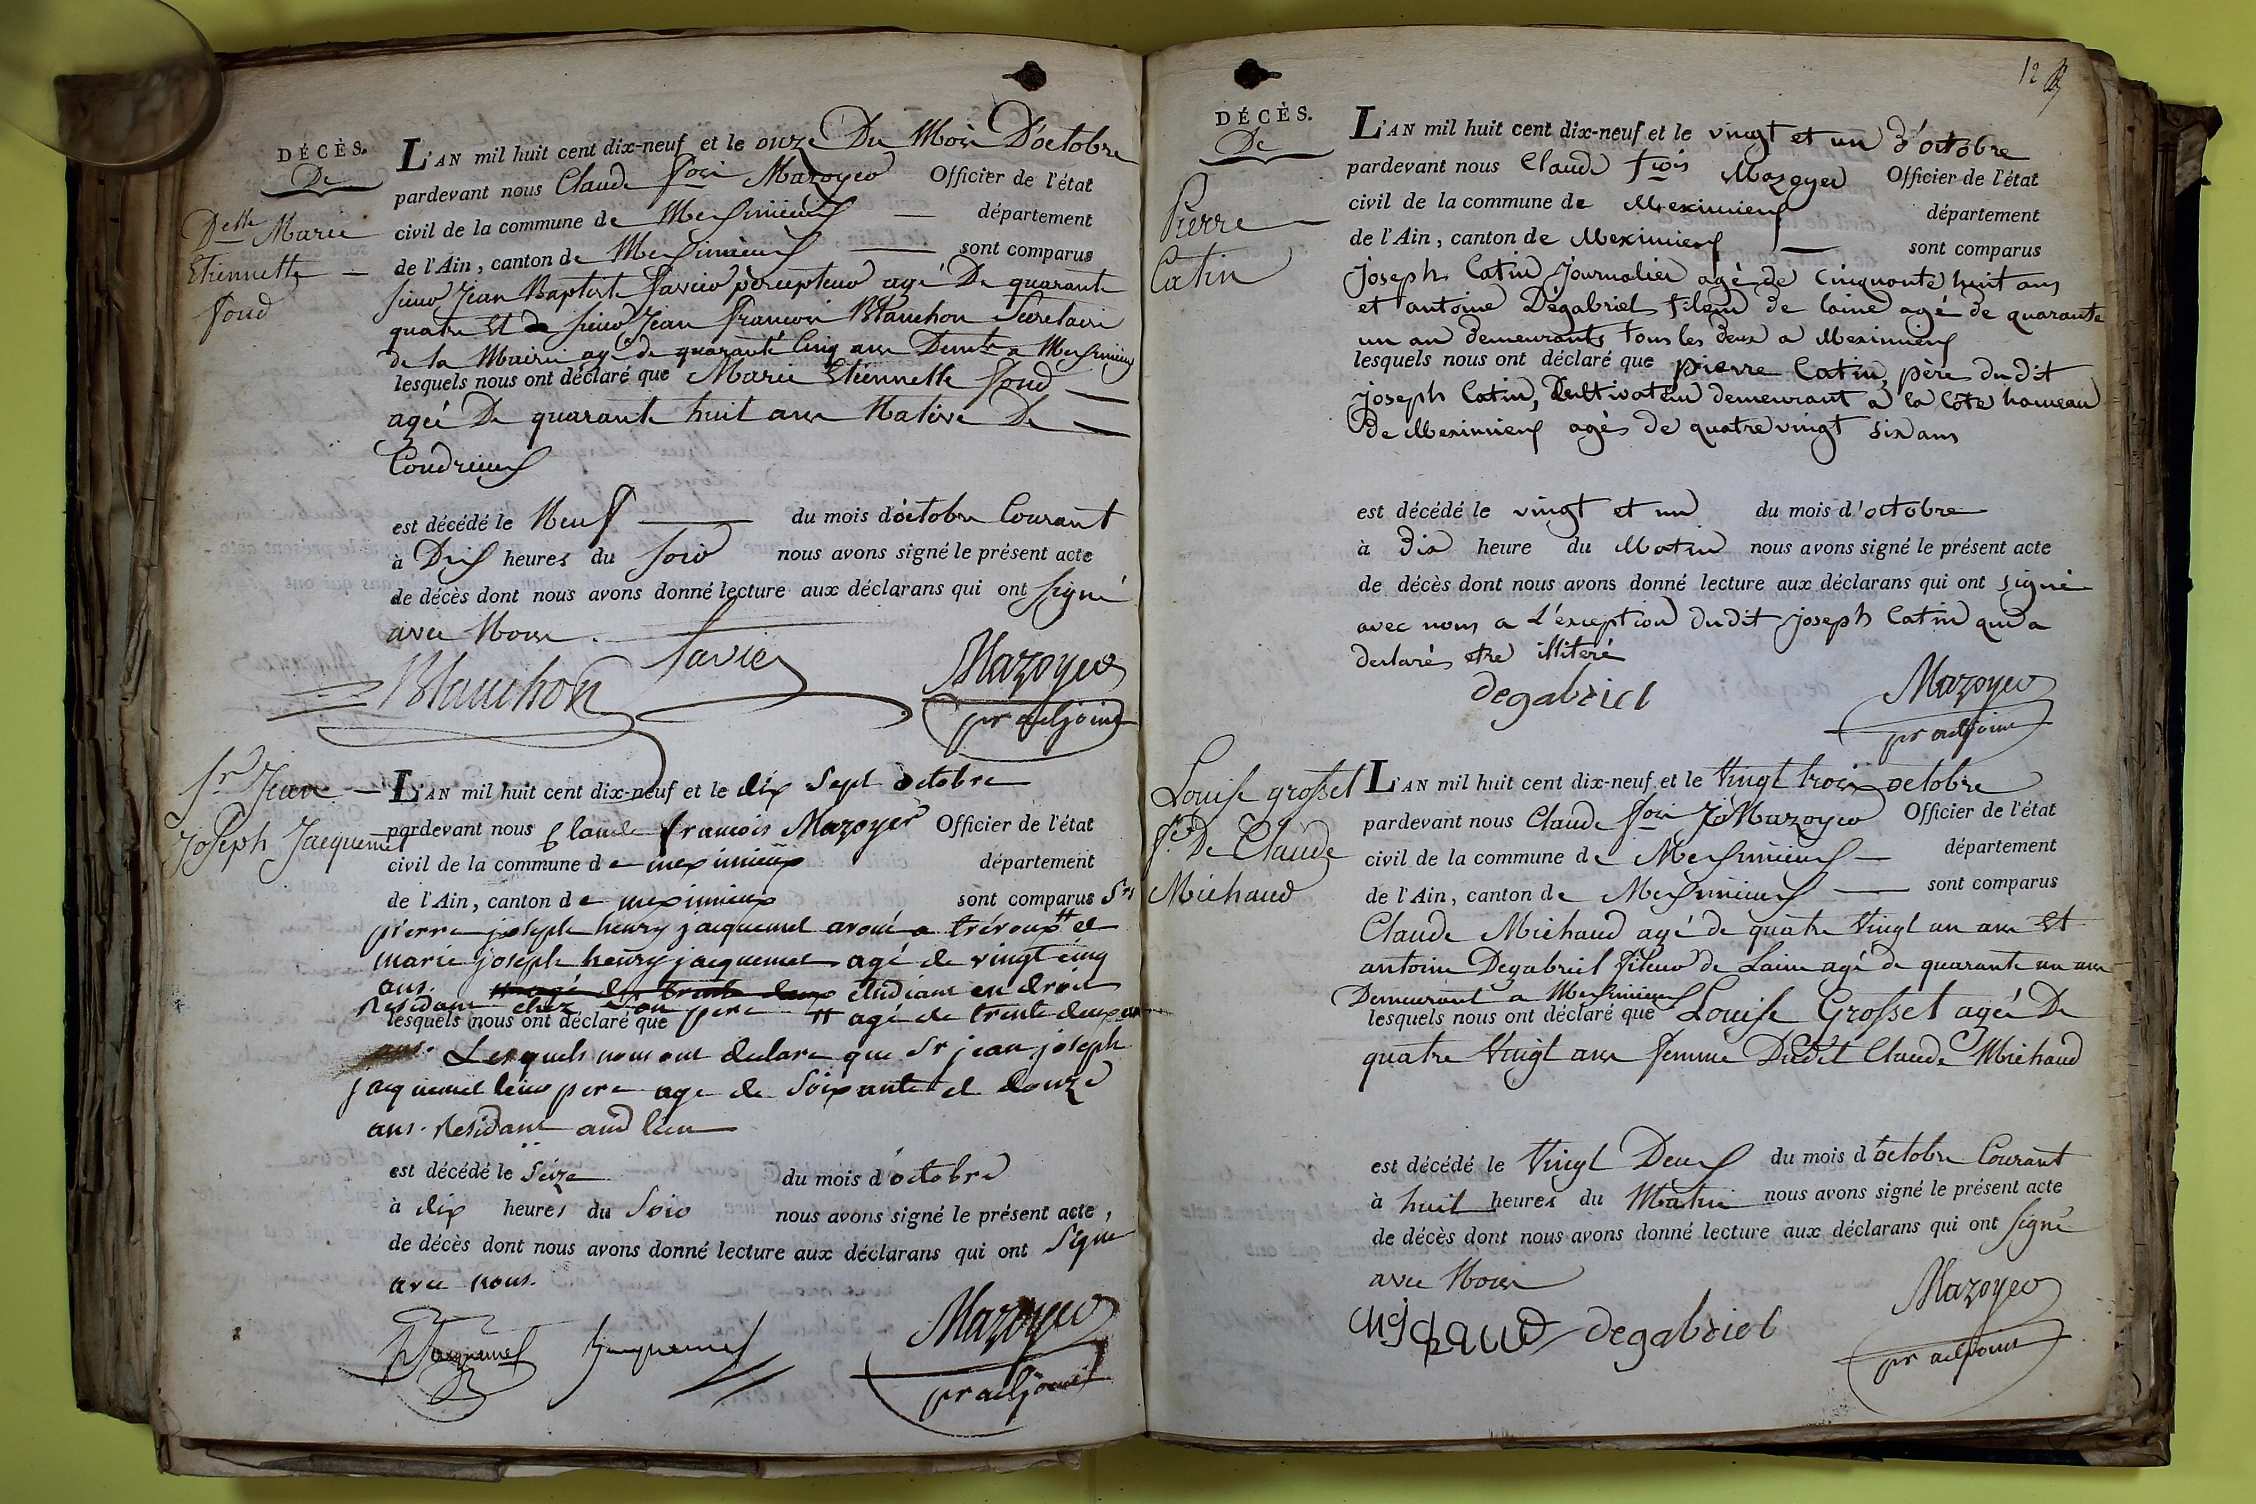 DÉCÈS.
De
Delle Marie
Etiennette
fond
L'AN mil huit cent dix-neuf et le onze Du Mois D'octobre
pardevant nous Claude fois Mazoyer Officier de l'état
civil de la commune de Meximieux département
de l'Ain, canton de Meximieux sont comparus
sieur Jean Baptiste favier percepteur agé De quarante
quatre Et de sieur Jean francois Blanchon Secretaire
de la Mairie agé de quarante Cinq ans Demts a Meximieux
lesquels nous ont déclaré que Marie Etiennette fond
agée De quarante huit ans Native De
Condrieux
est décédé le Neuf du mois d'octobre Courant
à Dix heures du soir nous avons signé le présent acte
de décès dont nous avons donné lecture aux déclarans qui ont signé
avec Nous.
Blanchon favier Mazoyer
pr adjoint
Sr Jean
Joseph Jacquemet
L'AN mil huit cent dix-neuf et le dix Sept octobre
pardevant nous Claude francois Mazoyer Officier de l'état
civil de la commune de meximieux département
de l'Ain, canton de meximieux sont comparus Srs
pierre joseph henry jacquemet avoué a trévoux # et
marie joseph henry jacquemet agé de vingt cinq
ans. # agé de trente deux étudiant en droit
Residant chez son pere # agé de trente deux ans
lesquels nous ont déclaré que
ans. Lesquels nous ont declare que Sr jean joseph
jacquemet leur pere age de soixante et douze
ans. Residant aud lieu
est décédé le seize du mois d'octobre
à dix heures du soir nous avons signé le présent acte,
de décès dont nous avons donné lecture aux déclarans qui ont signe
avec nous.
Jacquemet Jacquemet Mazoyer
pr adjoint
12
DÉCÈS.
De
Pierre
Catin
L'AN mil huit cent dix-neuf et le vingt et un d'octobre
pardevant nous Claude fois Mazoyer Officier de l'état
civil de la commune de Meximieux département
de l'Ain, canton de Meximieux sont comparus
joseph Catin journalier agé de cinquante huit ans
et antoine Dégabriel fileur de laine agé de quarante
un an demeurants tous les deux a Meximieux
lesquels nous ont déclaré que pierre Catin, père dudit
joseph Catin, Cultivateur demeurant à la côte hameau
de Meximieux agés de quatre vingt six ans
est décédé le vingt et un du mois d'octobre
à dix heure du Matin nous avons signé le présent acte
de décès dont nous avons donné lecture aux déclarans qui ont signé
avec nous a L'éxception dudit joseph Catin qui a
declarés etre illiteré
degabriel Mazoyer
pr adjoint
Louise grosset
fe De Claude
Michaud
L'AN mil huit cent dix-neuf et le Vingt trois octobre
pardevant nous Claude fois Mazoyer Officier de l'état
civil de la commune de Meximieux département
de l'Ain, canton de Meximieux sont comparus
Claude Michaud agé de quatre Vingt un ans Et
antoine Degabriel fileur de Laine agé de quarante un ans
Demeurant a Meximieux
lesquels nous ont déclaré que Louise Grosset agée De
quatre Vingt ans femme Dudit Claude Michaud
est décédé le Vingt Deux du mois d'octobre Courant
à huit heures du Matin nous avons signé le présent acte
de décès dont nous avons donné lecture aux déclarans qui ont signé
avec Nous
Michaud degabriel Mazoyer
pr adjoint